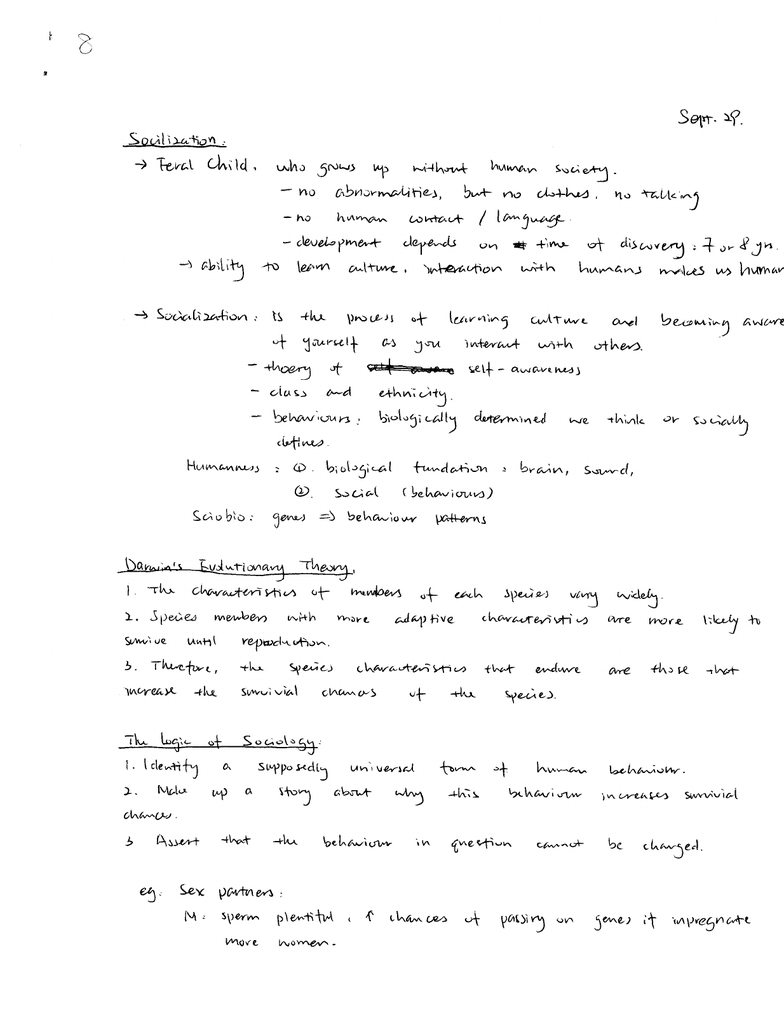 8
Sept. 29.
Socilization:
→ Feral Child, who grows up without human society.
- no abnormalities, but no clothes, no talking
- no human contact / language.
- development depends on time of discovery: 7 or 8 yr.
→ ability to learn culture, interaction with humans makes us human
→ Socialization: Is the process of learning culture and becoming aware
of yourself as you interact with others.
- thoery of self-awareness
- class and ethnicity.
- behaviours: biologically determined we think or socially
defines.
Humanness: ①. biological fundation: brain, sound,
②. social (behaviours)
Sciobio: genes => behaviour patterns
Darwin's Evolutionary Theory.
1. The characteristics of members of each species vary widely.
2. Species members with more adaptive characteristics are more likely to
survive until reproduction.
3. Therefore, the species characteristics that endure are those that
increase the survivial chances of the species.
The Logic of Sociology:
1. Identify a supposedly universal form of human behaviour.
2. Make up a story about why this behaviour increases survivial
chances.
3 Assert that the behaviour in question cannot be changed.
eg. Sex partners:
M: sperm plentiful, ↑ chances of passing on genes if impregnate
more women.